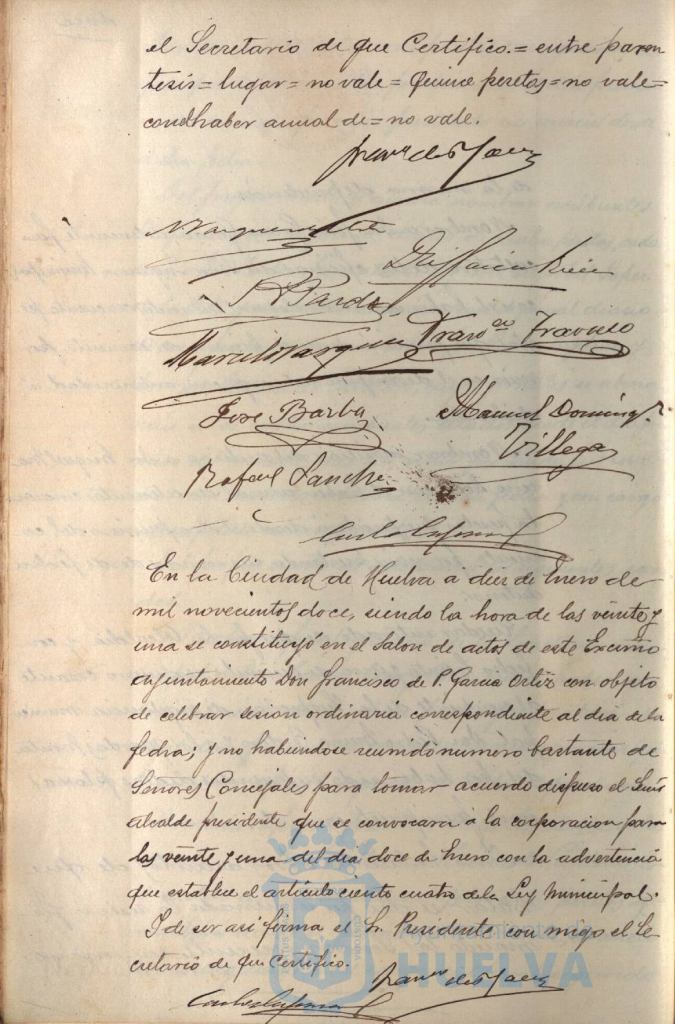 el Secretario de que Certifico.= entre paren
tesis= lugar= no vale= Quince pesetas= no vale=
cond haber anual de= no vale.
R Pardo
Marcelo Vazquez Franco Travieso
José Barba Manuel Doming.
Villega
Rafael Sanche
En la Ciudad de Huelva a diez de Enero de
mil novecientos doce, siendo la hora de las veinte y
una se constituyó en el Salon de actos de este Excmo
ayuntamiento Don Francisco de P. Garcia Ortiz con objeto
de celebrar sesion ordinaria correspondiente al dia de la
fecha; y no habiendose reunido numero bastante de
Señores Concejales para tomar acuerdo dispuso el Señor
alcalde presidente que se convocara a la corporacion para
las veinte y una del dia doce de Enero con la advertencia
que establece el articulo ciento cuatro de la Ley Municipal.
I de ser asi firma el Sr. Presidente con migo el Se
cretario de que Certifico.
HUELVA